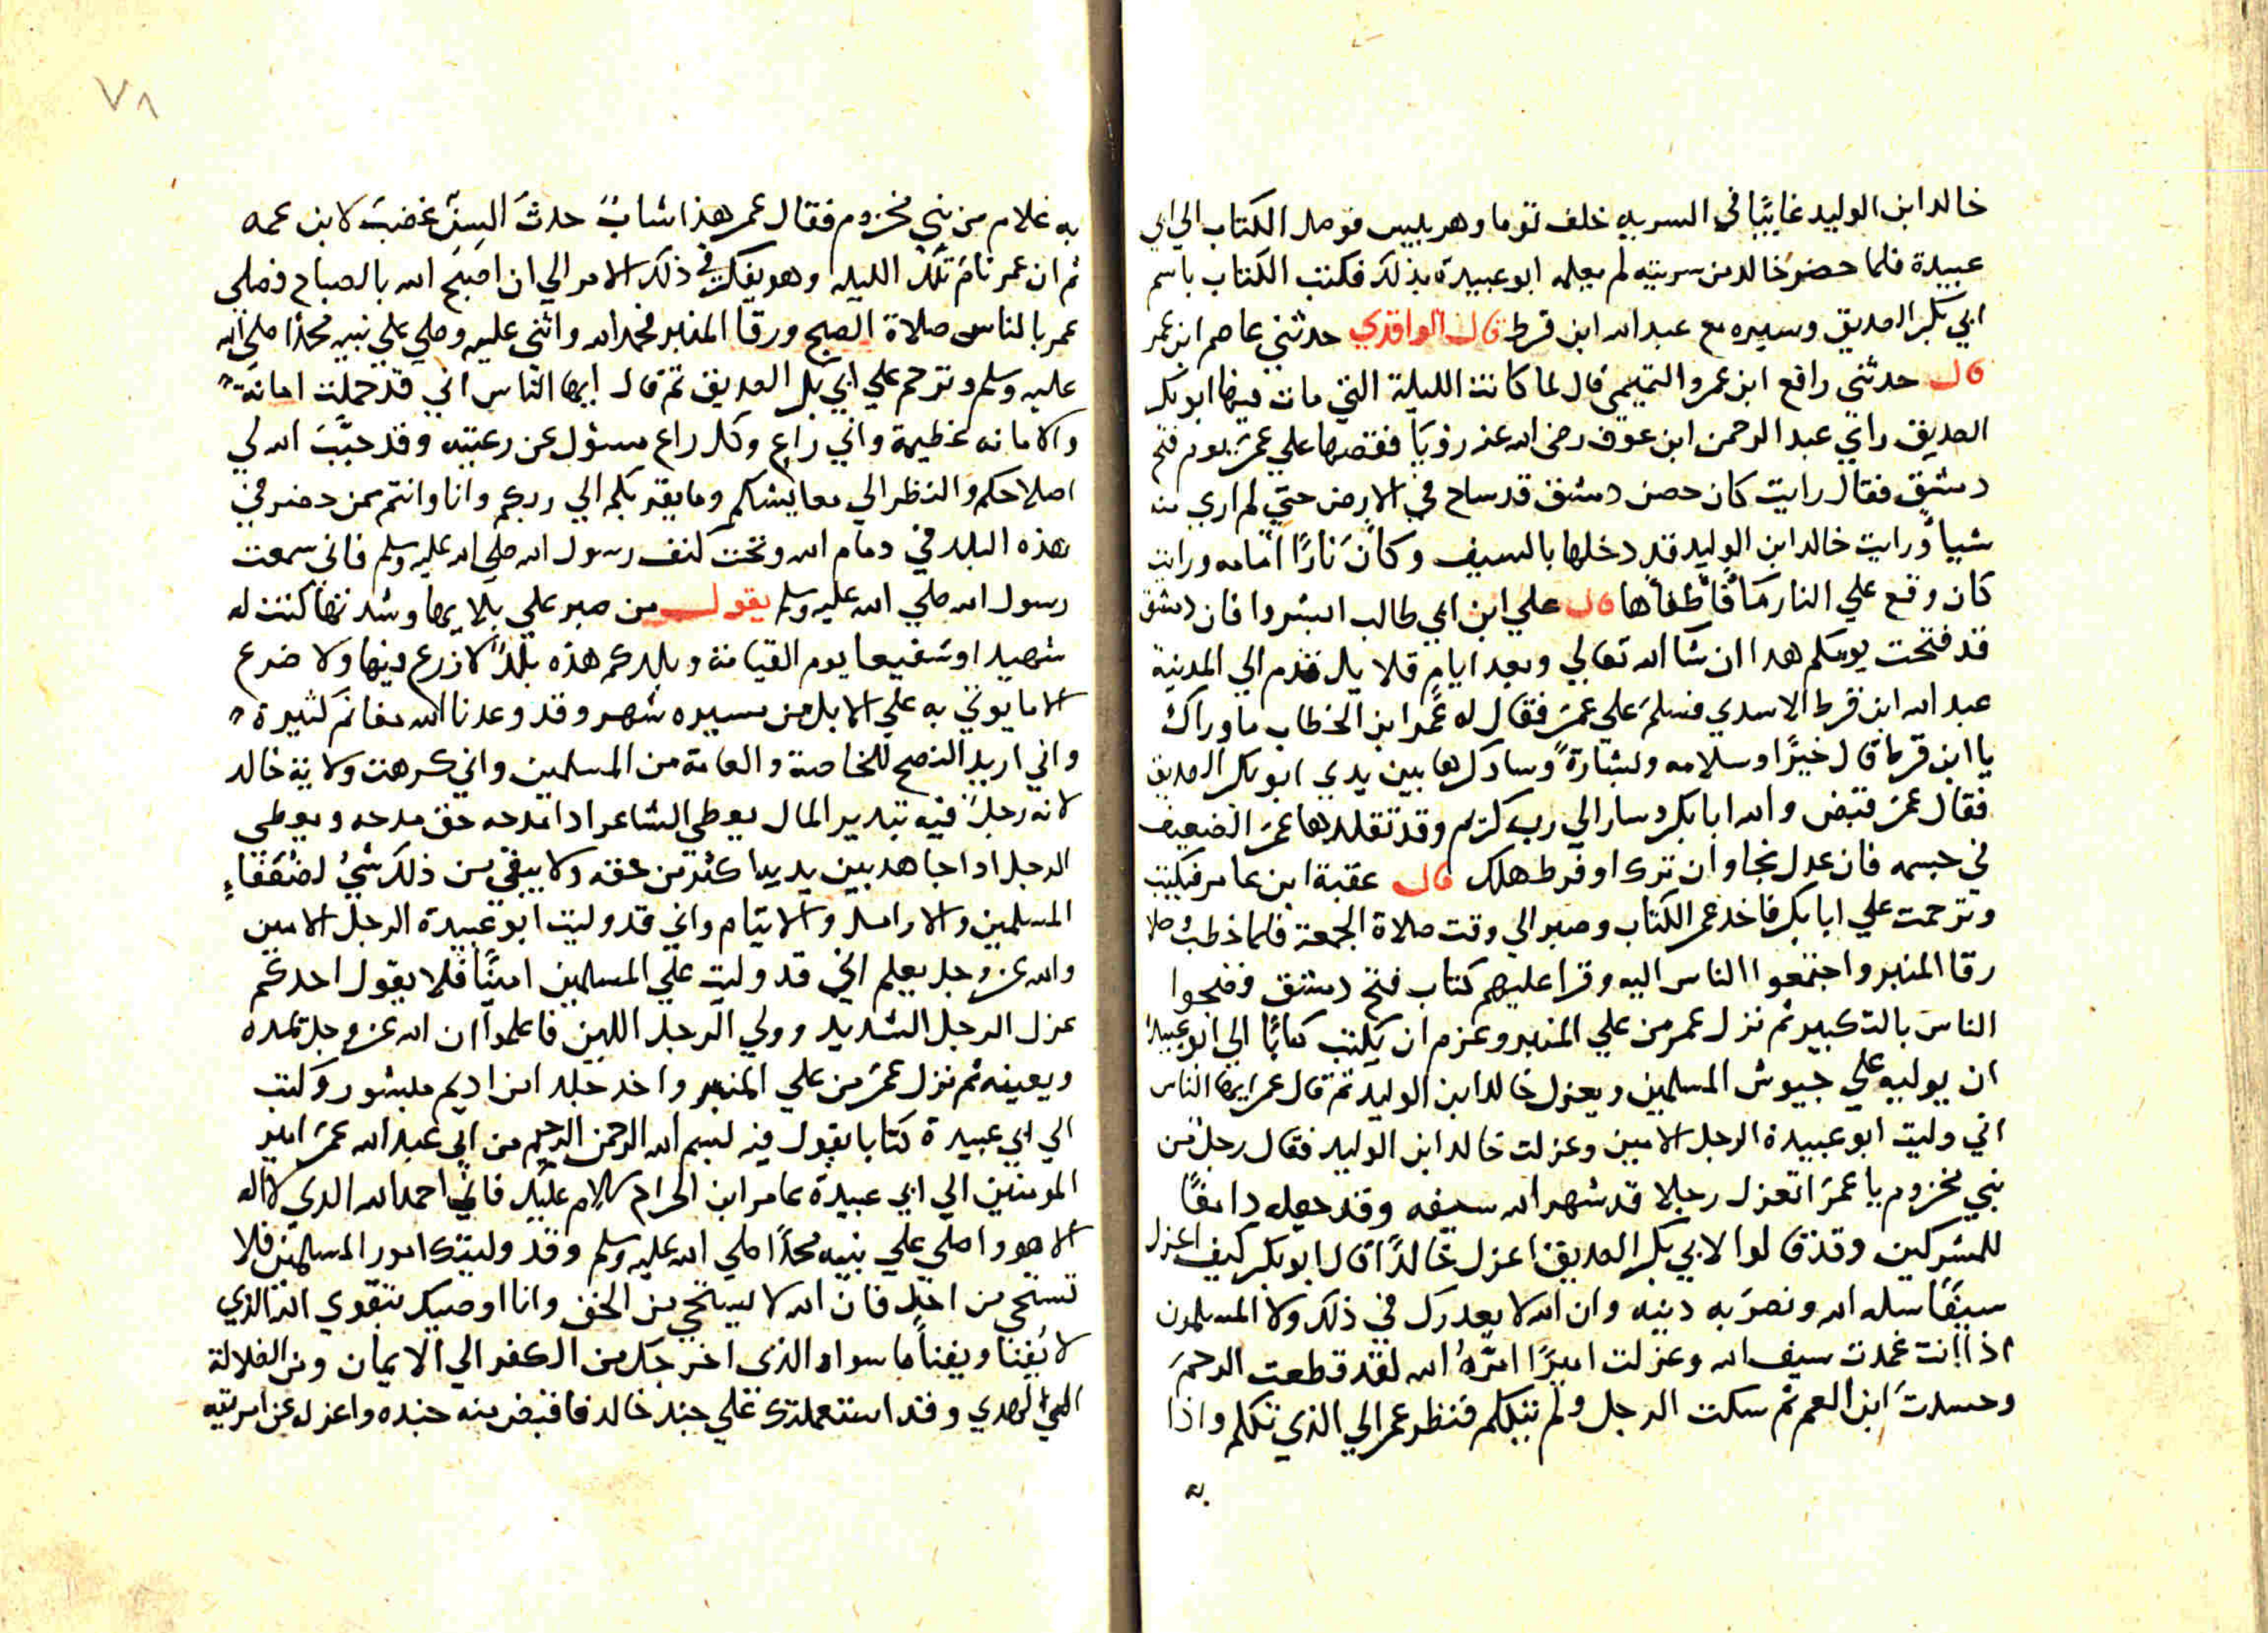 خالد ابن الوليد غايبًا في السريه خلف توما وهربيس فوصل الكتاب الي ابي
عبيدة فلما حضر خالد من سريته لم يعلمه ابو عبيدة بذلك فكتب الكتاب باسم
ابي بكر الصديق وسيره مع عبد الله ابن قرط قال الواقدي حدثني عاصم ابن عمر
قال حدثني رافع ابن عمرو التميمي قال لما كانت الليلة التي مات فيها ابو بكر
الصديق راي عبد الرحمن ابن عوف رضي الله عنه رؤيا فقصها علي عمر يوم فتح
دمشق فقال رايت كان حصن دمشق قد ساح في الارض حتي لم اري منه
شيأ ورايت خالد ابن الوليد قد دخلها بالسيف وكأن نارًا امامه ورايت
كان وقع علي النار مآ فأطفأها قال علي ابن ابي طالب ابشروا فان دمشق
قد فتحت يومكم هدا ان شا الله تعالي وبعد ايام قلايل قدم الي المدينة
عبد الله ابن قرط الاسدي فسلم علي عمر فقال له عمر ابن الخطاب ما وراك
يا ابن قرط قال خيرًا وسلامه وبشارةً وسادكرها بين يدي ابو بكر الصديق
فقال عمر قبض والله ابا بكر وسار الي رب كريم وقد تقلدها عمر الضعيف
في جسمه فان عدل نجا وان ترك او فرط هلك قال عقبة ابن عامر فبكيت
وترحمت علي ابا بكر فاخد عمر الكتاب وصبر الي وقت صلاة الجمعة فلما خطب وصلا
رقا المنبر واجتمعوا الناس اليه وقرا عليهم كتاب فتح دمشق وضجوا
الناس بالتكبير ثم نزل عمر من علي المنبر وعزم ان يكتب كتابًا الي ابو عبيدة
ان يوليه علي جيوش المسلمين ويعزل خالد ابن الوليد ثم قال عمر ايها الناس
اني وليت ابو عبيدة الرجل الامين وعزلت خالد ابن الوليد فقال رجل من
بني مخزوم يا عمر اتعزل رجلا قد شهر الله سيفه وقد جعله دافعًا
للمشركين وقد قالوا لابي بكر الصديق اعزل خالدًا قال ابو بكر كيف اعزل
سيفًا سله الله ونصر به دينه وان الله لا يعدرك في ذلك ولا المسلمون
اذا انت غمدت سيف الله وعزلت اميرًا امّره الله لقد قطعت الرحم
وحسدت ابن العم ثم سكت الرجل ولم يتكلم فنظر عمر الي الذي تكلم واذا
به
٧٨
به غلام من بني مخزوم فقال عمر هذا شابٌ حدثَ السِنّ غضبَ لابن عمه
ثم ان عمر نام تلك الليله وهو يفكر في ذلك الامر الي ان اصبح الله بالصباح فصلي
عمر بالناس صلاة الصبح ورقا المنبر فحمد الله واثني عليه وصلي علي نبيه محمدًا صلي الله
عليه وسلم وترحم علي ابي بكر الصديق ثم قال ايها الناس اني قد حملت امانة
والامانه عظيمة واني راعٍ وكل راع مسؤل عن رعيته وقد حبَّبَ الله لي
اصلاحكم والنظر الي معايشكم وما يقربكم الي ربكم وانا وانتم ممن حضر في
هذه البلد في دمام الله وتحت كنف رسول الله صلي الله عليه وسلم فاني سمعت
رسول الله صلي الله عليه وسلم يقول من صبر علي بلايها وشدتها كنت له
شهيدا وشفيعا يوم القيامة وبلدكم هذه بلدًا لا زرع فيها ولا ضرع
الا ما يوتي به علي الابل من مسيره شهر وقد وعدنا الله مغانم كثيرة
واني اريد النصح للخاصة والعامة من المسلمين واني كرهت ولاية خالد
لانه رجلٌ فيه تبدير المال يعطي الشاعر ادا مدحه حق مدحه ويعطي
الرجل ادا جاهد بين يديه اكثر من حقه ولا يبقي من ذلك شيُ لضعفاءِ
المسلمين والارامل والايتام واني قد وليت ابو عبيدة الرجل الامين
والله عز وجل يعلم اني قد وليت علي المسلمين امينًا فلا يقول احدكم
عزل الرجل الشديد وولي الرجل اللين فاعلموا ان الله عز وجل يمده
ويعينه ثم نزل عمر من علي المنبر واخد جلد من اديم مبشور وكتب
الي ابي عبيدة كتابا يقول فيه بسم الله الرحمن الرحيم من ابي عبد الله عمر امير
المومنين الي ابي عبيدة عامر ابن الجراح سلام عليك فاني احمد الله الدي لا اله
الا هو واصلي علي نبيه محمدًا صلي الله عليه وسلم وقد وليتك امور المسلمين فلا
تستحي من احد فان الله لا يستحي من الحق وانا اوصيك بتقوي الله الذي
لا يُفنا ويفنا ما سواه الذي اخرجك من الكفر الي الايمان ومن الضلالة
الي الهدي وقد استعملتك علي جند خالد فاقبض منه جنده واعزله عن امرتيه